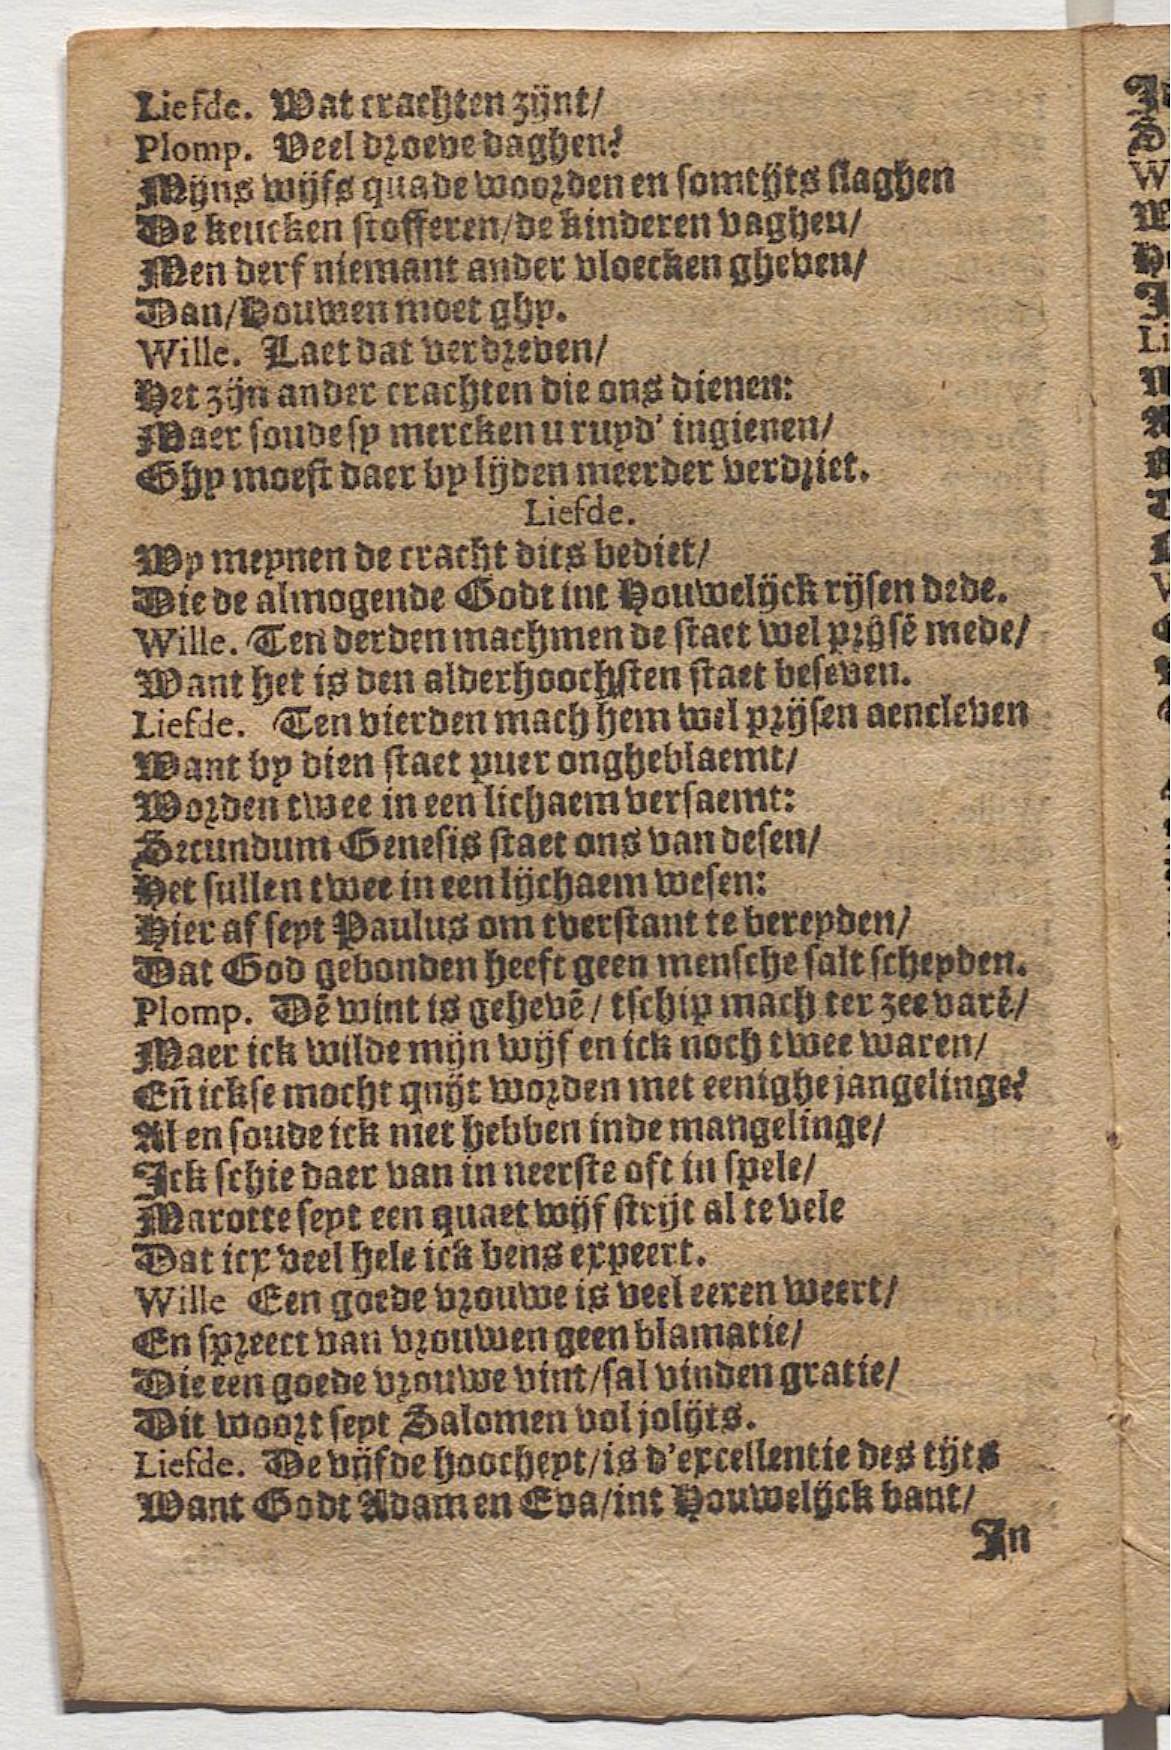 Liefde. Wat crachten zijnt/
Plomp. Veel droeve daghen?
Mijns wijfs quade woorden en somtijts slaghen
De keucken stofferen/de kinderen vaghen/
Men derf niemant ander vloecken gheven/
Dan/Houwen moet ghy.
Wille. Laet dat verdreven/
Het zijn ander crachten die ons dienen:
Maer soude sy mercken u ruyd' ingienen/
Ghy moest daer by lijden meerder verdriet.
Liefde.
Wy meynen de cracht dits bediet/
Die de almogende Godt int Houwelijck rijsen dede.
Wille. Ten derden machmen de staet wel prijsē mede/
Want het is den alderhoochsten staet beseven.
Liefde. Ten vierden mach hem wel prijsen aencleven
Want by dien staet puer ongheblaemt/
Worden twee in een lichaem versaemt:
Secundum Genesis staet ons van desen/
Het sullen twee in een lijchaem wesen:
Hier af seyt Paulus om tverstant te bereyden/
Dat God gebonden heeft geen mensche salt scheyden.
Plomp. Dē wint is gehevē/ tschip mach ter zee varē/
Maer ick wilde mijn wijf en ick noch twee waren/
Eñ ickse mocht quijt worden met eenighe jangelinge?
Al en soude ick niet hebben inde mangelinge/
Ick schie daer van in neerste oft in spele/
Marotte seyt een quaet wijf strijt al te vele
Dat icx veel hele ick bens expeert.
Wille Een goede vrouwe is veel eeren weert/
En spreect van vrouwen geen blamatie/
Die een goede vrouwe vint/sal vinden gratie/
Dit woort seyt Salomen vol jolijts.
Liefde. De vijfde hoocheyt/is d'excellentie des tijts
Want Godt Adam en Eva/int Houwelijck bant/
In